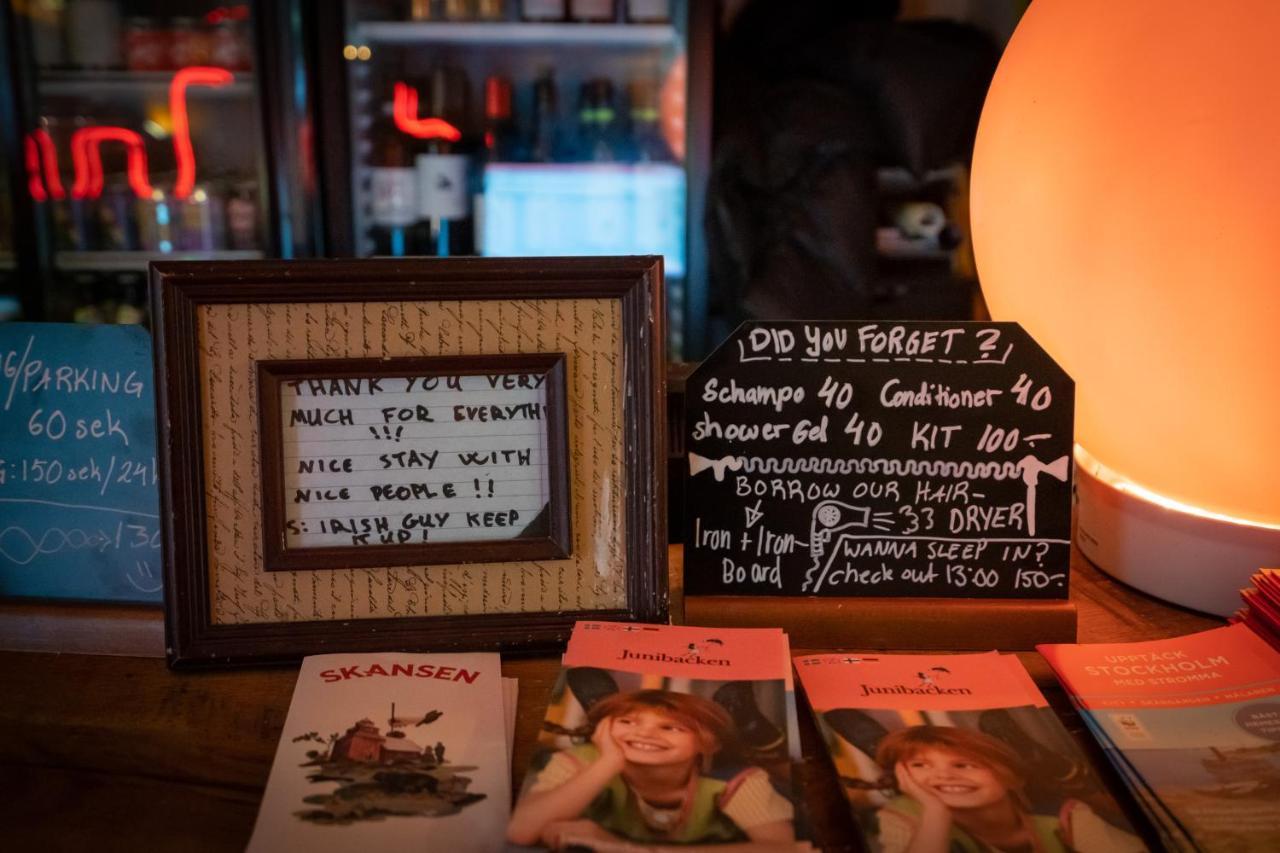 /PARKING
60 sek
:150sek/24h
THANK YOU VERY
MUCH FOR EVERYTH
!!!
NICE STAY WITH
NICE PEOPLE !!
S: IRISH GUY KEEP
IT UP!
DID YOU FORGET ?
Schampo 40 Conditioner 40
shower Gel 40 KIT 100:-
BORROW OUR HAIR-
DRYER
Iron + Iron-
Board
WANNA SLEEP IN?
check out 13:00 150:-
SKANSEN
Junibacken
Junibacken
UPPTÄCK
STOCKHOLM
MED STROMMA